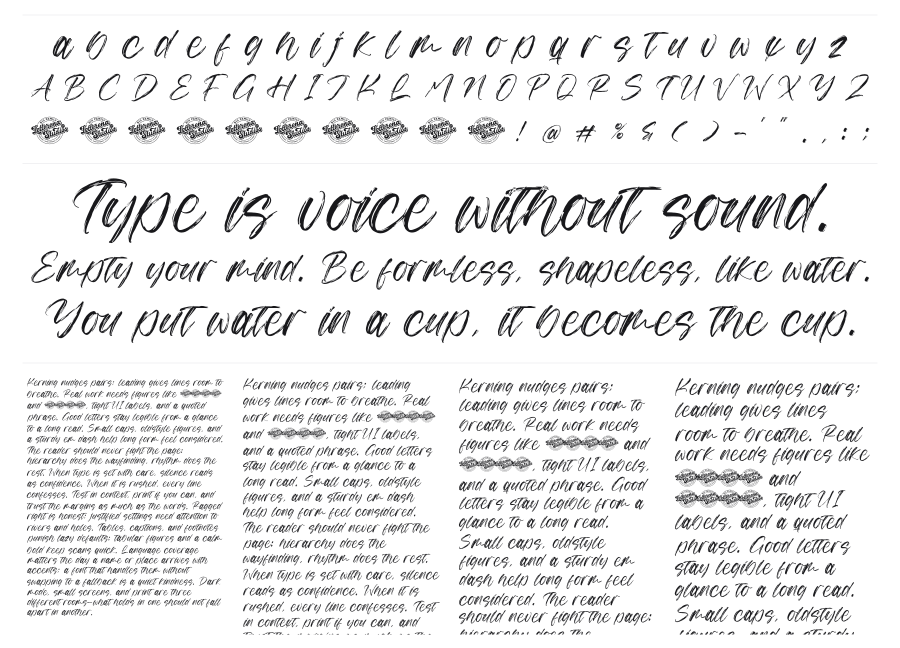 a b c d e f g h i j k l m n o p q r s t u v w x y z
A B C D E F G H I J K L M N O P Q R S T U V W X Y Z
! @ # % & ( ) - ' " . , : ;
Type is voice without sound.
Empty your mind. Be formless, shapeless, like water.
You put water in a cup, it becomes the cup.
Kerning nudges pairs; leading gives lines room to
breathe. Real work needs figures like
and , tight UI labels, and a quoted
phrase. Good letters stay legible from a glance
to a long read. Small caps, oldstyle figures, and
a sturdy em dash help long form feel considered.
The reader should never fight the page:
hierarchy does the wayfinding, rhythm does the
rest. When type is set with care, silence reads
as confidence. When it is rushed, every line
confesses. Test in context, print if you can, and
trust the margins as much as the words. Ragged
right is honest; justified settings need attention to
rivers and holes. Tables, captions, and footnotes
punish lazy defaults; tabular figures and a calm
bold keep scans quick. Language coverage
matters the day a name or place arrives with
accents; a font that handles them without
swapping to a fallback is a quiet kindness. Dark
mode, small screens, and print are three
different rooms—what holds in one should not fall
apart in another.
Kerning nudges pairs; leading
gives lines room to breathe. Real
work needs figures like
and , tight UI labels,
and a quoted phrase. Good letters
stay legible from a glance to a
long read. Small caps, oldstyle
figures, and a sturdy em dash
help long form feel considered.
The reader should never fight the
page: hierarchy does the
wayfinding, rhythm does the rest.
When type is set with care, silence
reads as confidence. When it is
rushed, every line confesses. Test
in context, print if you can, and
Kerning nudges pairs;
leading gives lines room to
breathe. Real work needs
figures like and
, tight UI labels,
and a quoted phrase. Good
letters stay legible from a
glance to a long read.
Small caps, oldstyle
figures, and a sturdy em
dash help long form feel
considered. The reader
should never fight the page:
hierarchy does the
Kerning nudges pairs;
leading gives lines
room to breathe. Real
work needs figures like
and
, tight UI
labels, and a quoted
phrase. Good letters
stay legible from a
glance to a long read.
Small caps, oldstyle
figures, and a sturdy